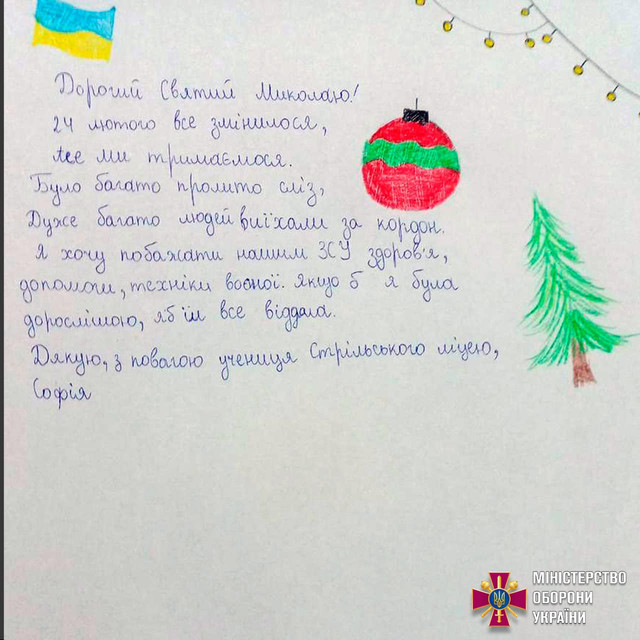 Дорогий Святий Миколаю!
24 лютого все змінилося,
Але ми тримаємося.
Було багато пролито сліз,
Дуже багато людей виїхали за кордон.
Я хочу побажати нашим ЗСУ здоров'я,
допомоги, техніки воєної. Якщо б я була
дорослішою, я б їм все віддала.
Дякую, з повагою учениця Стрільського ліцею,
Софія
МІНІСТЕРСТВО
ОБОРОНИ
УКРАЇНИ